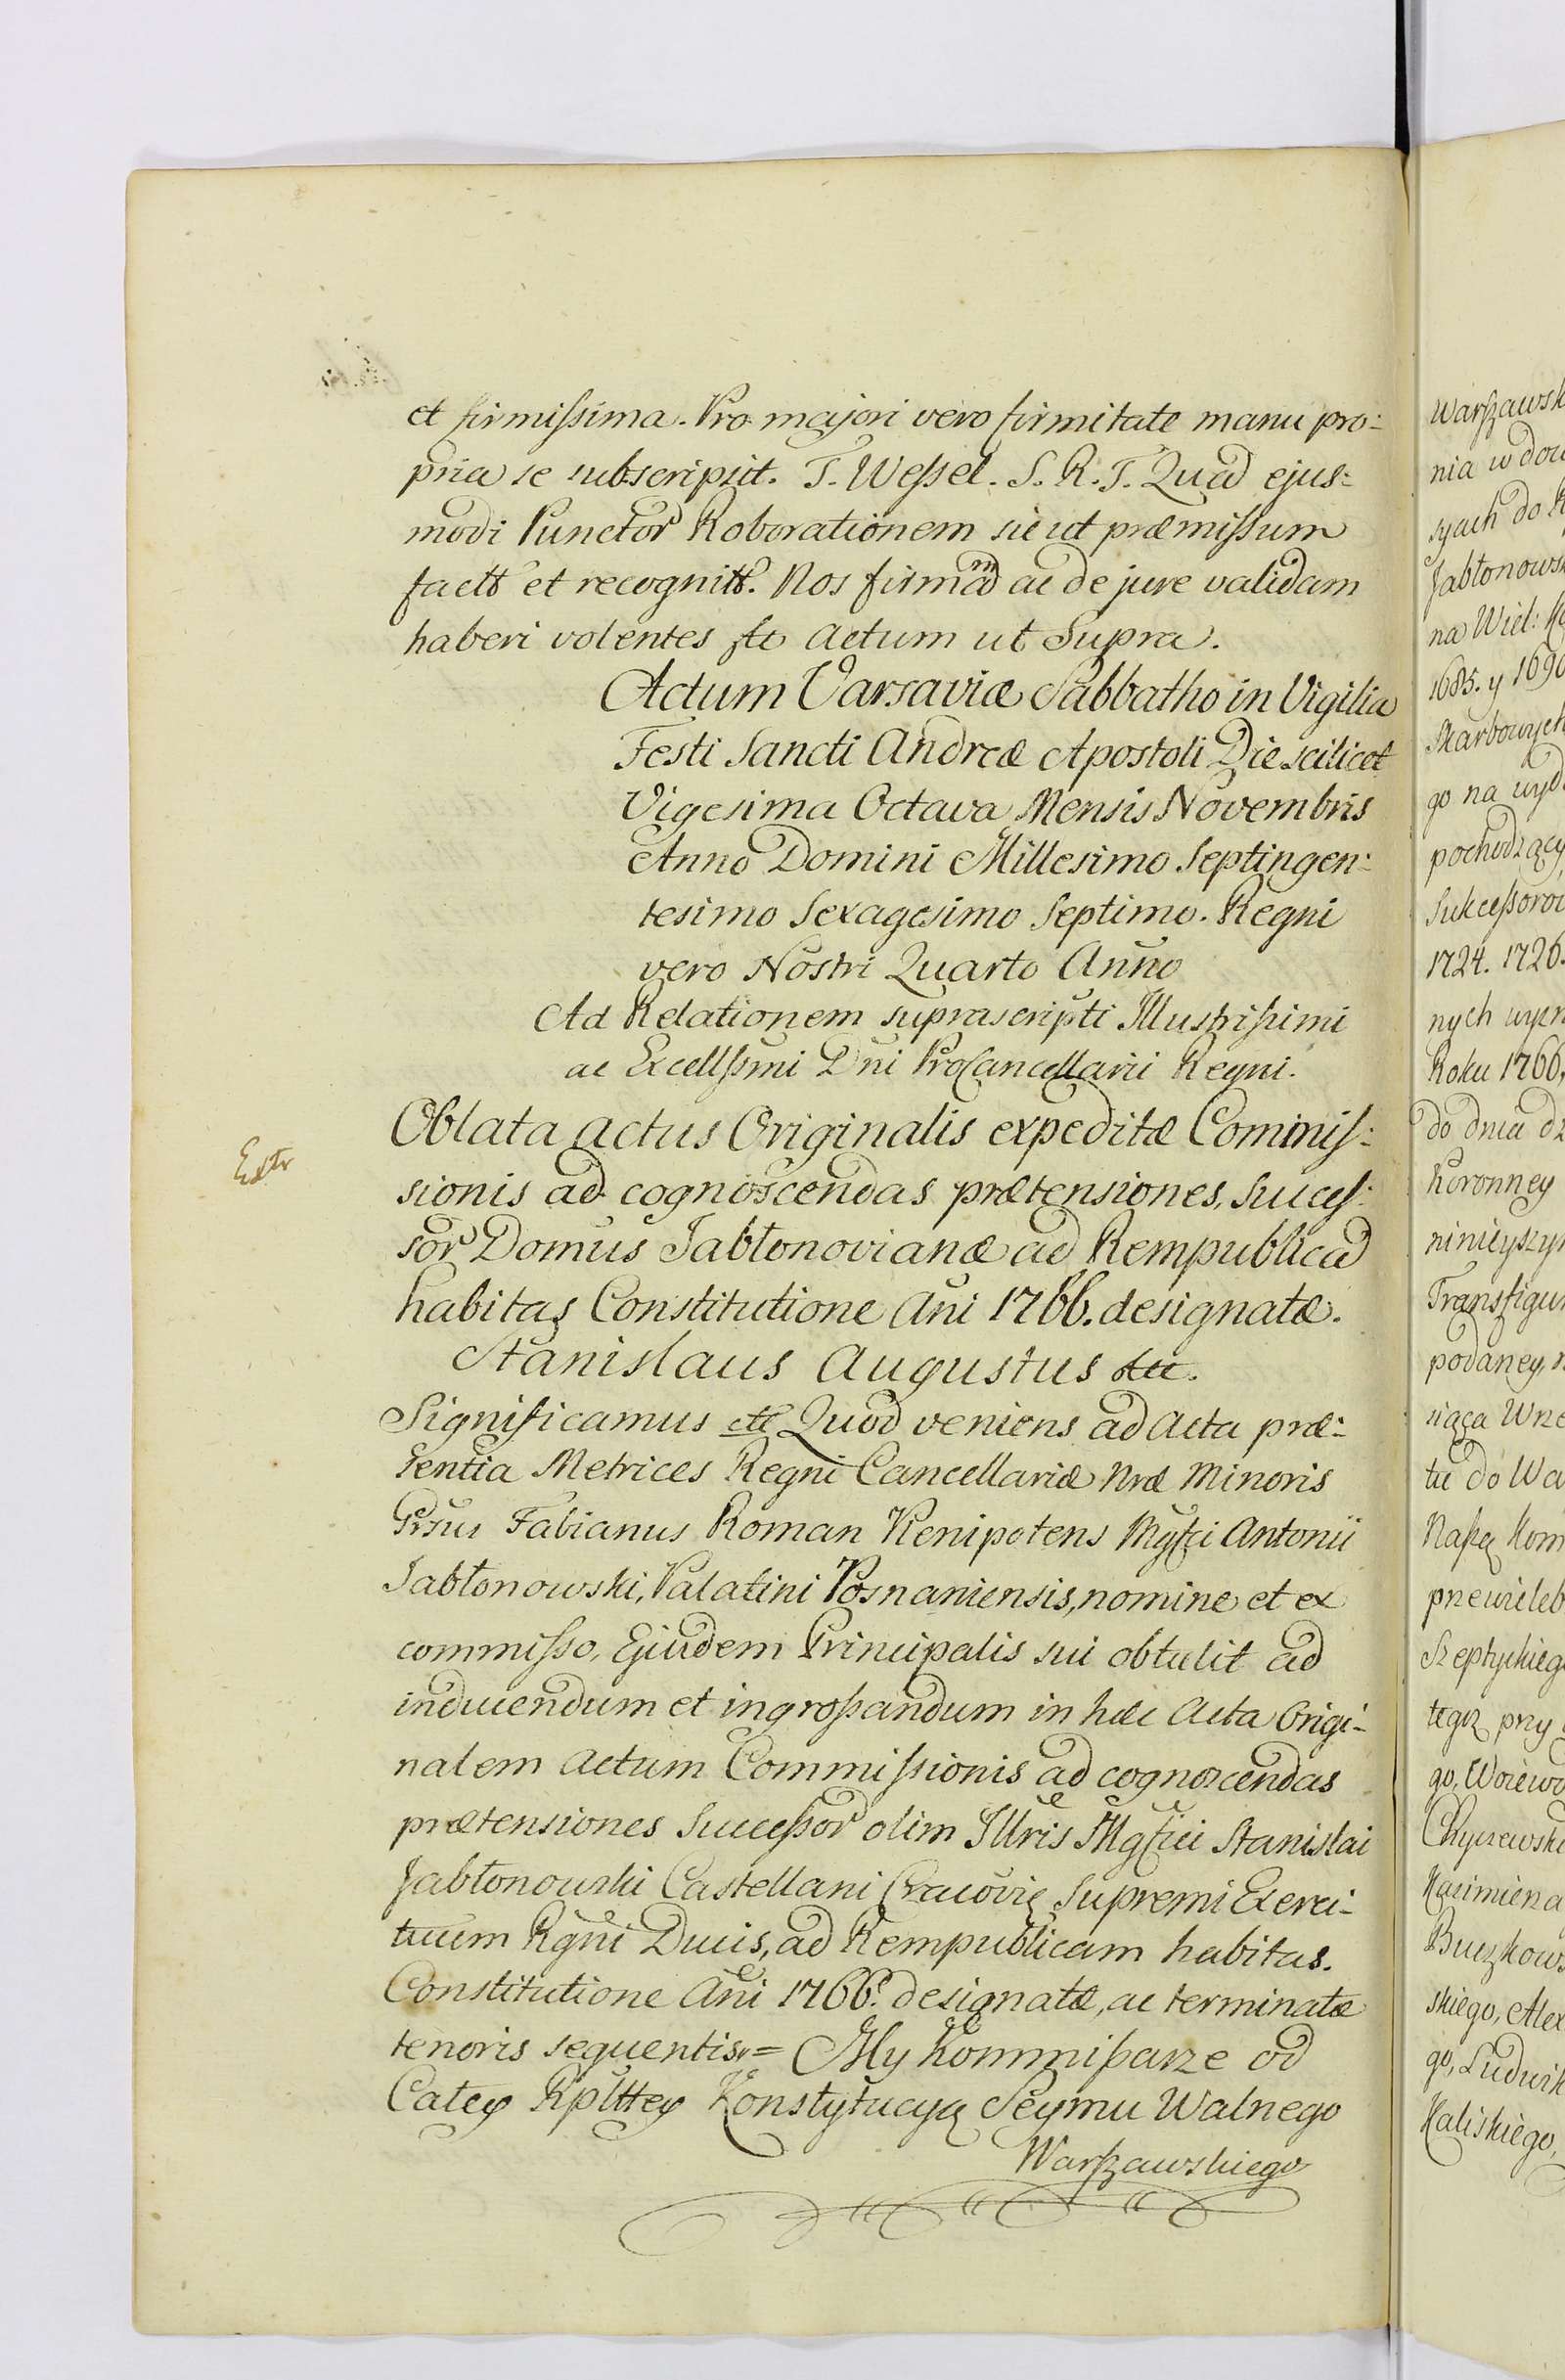 et firmissima. Pro majori vero firmitate manu pro:
pria se subscripsit. T. Wessel. S. R. T. Quã ejus:
modi Punctor Roborationem sic ut præmissum
factt et recognitt. Nos firmã ac de jure validam
haberi volentes &c Actum ut Supra.
Actum Varsaviæ Sabbatho in Vigilia
Festi Sancti Andreæ Apostoli Die scilicet
Vigesima Octava Mensis Novembris
Anno Domini Millesimo Septingen:
tesimo Sexagesimo Septimo. Regni
vero Nostri Quarto Anno
Ad Relationem suprascripti Illustrissimi
ac Excellssmi Dni ProCancellarii Regni.
Extr
Oblata actus Originalis expeditæ Commis:
sionis ad cognoscendas prætensiones, Succes:
sor Domus Jabłonovianæ ad Rempublicã
habitas Constitutione Añi 1766. designatæ.
Stanislaus Augustus &c.
Significamus &c Quod veniens ad Acta præ:
sentia Metrices Regni Cancellariæ nræ Minoris
Grsus Fabianus Roman Plenipotens Mgfci Antonii
Jabłonowski, Palatini Posnaniensis, nomine et ex
commisso, Ejusdem Principalis sui obtulit ad
inducendum et ingrossandum in hæc Acta Origi-
nalem Actum Commissionis ad cognoscendas
prætensiones Successor olim Illris Mgfici Stanislai
Jabłonowski Castellani Cracovię Supremi Exerci-
tuum Rgni Ducis, ad Rempublicam habitas.
Constitutione Añi 1766. designatæ, ac terminatæ
tenoris sequentis = My Kommissarze od
Całey Rplttey Konstytucyą Seymu Walnego
Warszawskiego
Warszawsk
nia w dou
syach do K
Jabłonows
na Wiel: K
1685. y 1690
Skarbowych
go na wyd
pochodzący
Sukcessorow
1724. 1726.
nych
Roku 1766,
do dnia dz
Koronney
ninieyszy
Transfigur
podaney,
siąca Wrze
tu do Wa
Naszą Kom
przewieleb
Szeptyckieg
tegoz przy
go, Woiewo
Chyczewski
Kazimierza
Buczkows
skiego, Alex
go, Ludwik
Kaliskiego,